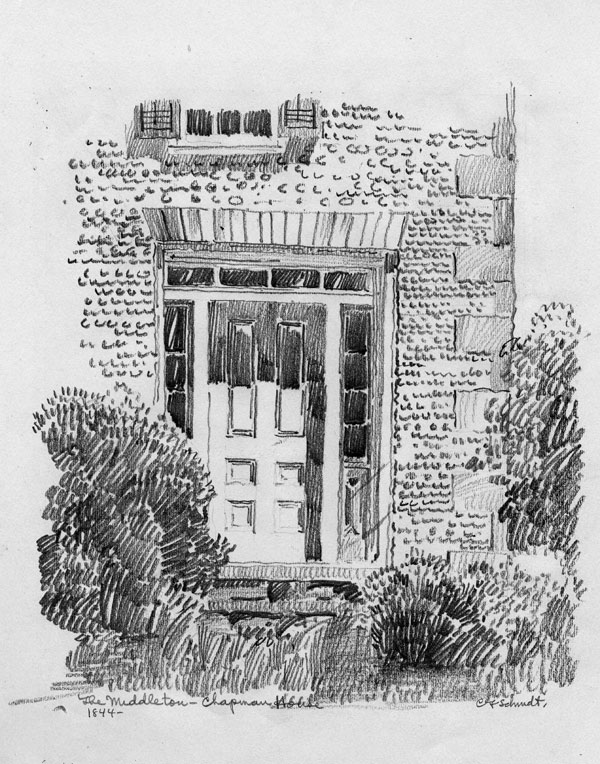 The Middleton – Chapman House
1844 –
C F Schmidt,